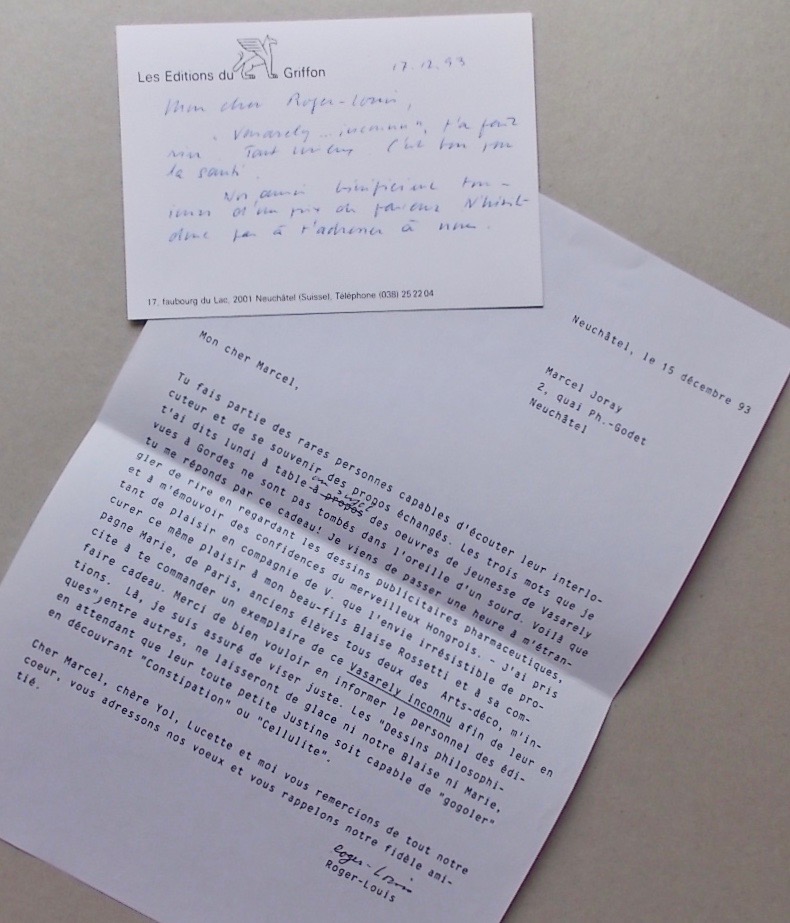 Les Editions du Griffon
17.12.93
Mon cher Roger-Louis,
"Vasarely inconnu", t'a fait
rire. Tant mieux. C'est bon pour
la santé.
Nos amis bénéficient tou-
jours d'un prix de faveur. N'hésite
donc pas à t'adresser à nous.
17, faubourg du Lac, 2001 Neuchâtel (Suisse), Téléphone (038) 25 22 04
Neuchâtel, le 15 décembre 93
Marcel Joray
2, quai Ph.-Godet
Neuchâtel
Mon cher Marcel,
Tu fais partie des rares personnes capables d'écouter leur interlo-
cuteur et de se souvenir des propos échangés. Les trois mots que je
t'ai dits lundi à table à propos au sujet des oeuvres de jeunesse de Vasarely
vues à Gordes ne sont pas tombés dans l'oreille d'un sourd. Voilà que
tu me réponds par ce cadeau! Je viens de passer une heure à m'étran-
gler de rire en regardant les dessins publicitaires pharmaceutiques,
et à m'émouvoir des confidences du merveilleux Hongrois. - J'ai pris
tant de plaisir en compagnie de V. que l'envie irrésistible de pro-
curer ce même plaisir à mon beau-fils Blaise Rossetti et à sa com-
pagne Marie, de Paris, anciens élèves tous deux des Arts-déco, m'in-
cite à te commander un exemplaire de ce Vasarely inconnu afin de leur en
faire cadeau. Merci de bien vouloir en informer le personnel des édi-
tions. Là, je suis assuré de viser juste. Les "Dessins philosophi-
ques", entre autres, ne laisseront de glace ni notre Blaise ni Marie,
en attendant que leur toute petite Justine soit capable de "gogoler"
en découvrant "Constipation" ou "Cellulite".
Cher Marcel, chère Yol, Lucette et moi vous remercions de tout notre
coeur, vous adressons nos voeux et vous rappelons notre fidèle ami-
tié.
Roger-Louis
Roger-Louis